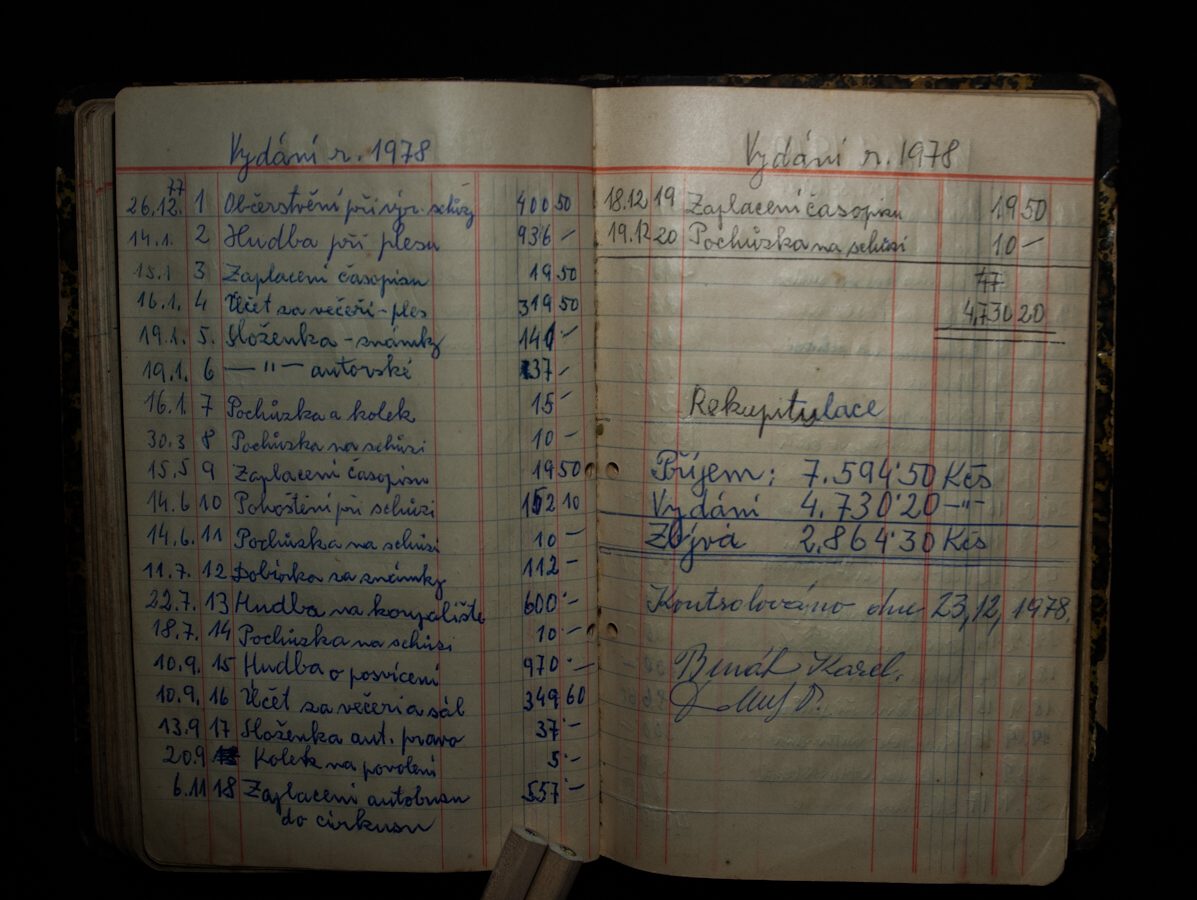 Vydání r. 1978
77
26.12. 1 Občerstvění při výr. schůzy 400 50
14.1. 2 Hudba při plesu 936 –
15.1 3 Zaplacení časopisu 19 50
16.1. 4 Účet za večeři - ples 319 50
19.1. 5. Složenka - známky 141 –
19.1. 6 — " — autorské 137 –
16.1. 7 Pochůzka a kolek 15 –
30.3 8 Pochůzka na schůzi 10 –
15.5 9 Zaplacení časopisu 19 50
14.6 10 Pohoštění při schůzi 152 10
14.6. 11 Pochůzka na schůzi 10 –
11.7. 12 Dobírka za známky 112 –
22.7. 13 Hudba na koupaliště 600 –
18.7. 14 Pochůzka na schůzi 10 –
10.9. 15 Hudba o posvícení 970 –
10.9. 16 Účet za večeři a sál 349 60
13.9 17 Složenka aut. pravo 37 –
20.9 Kolek na povolení 5 –
6.11 18 Zaplacení autobusu 557 –
do cirkusu
Vydání r. 1978
18.12 19 Zaplacení časopisu 19 50
19.12 20 Pochůzka na schůzi 10 –
4.730 20
Rekapitulace
Příjem: 7.594'50 Kčs
Vydání 4.730'20 –"–
Zbývá 2.864'30 Kčs
Kontrolováno dne 23,12, 1978.
Karel.